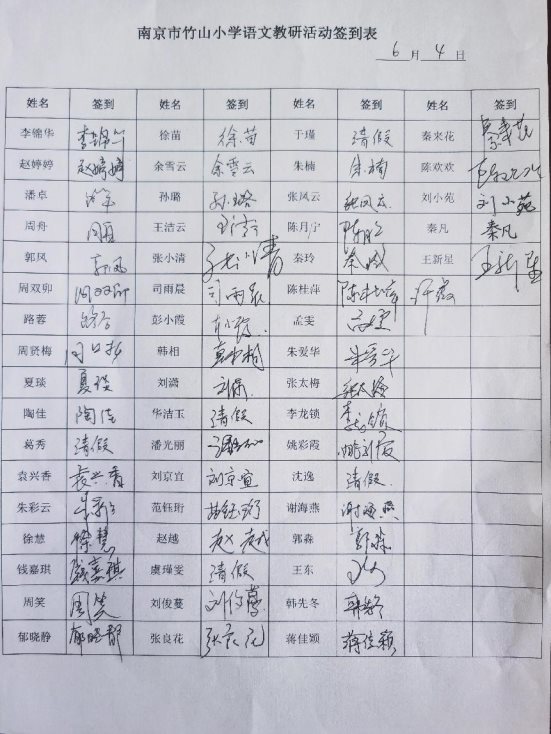 南京市竹山小学语文教研活动签到表
6月4日
姓名 签到 姓名 签到 姓名 签到 姓名 签到
李锦华 李锦华 徐苗 徐苗 于瑾 请假 秦来花
赵婷婷 赵婷婷 余雪云 余雪云 朱楠 朱楠 陈欢欢
潘卓 潘卓 孙璐 孙璐 张凤云 张凤云 刘小苑 刘小苑
周舟 王洁云 陈月宁 秦凡 秦凡
郭凤 郭凤 张小清 张小清 秦玲 王新星 王新星
周双卯 周双卯 司雨晨 司雨晨 陈桂萍 陈桂萍
路蓉 路蓉 彭小霞 孟雯
周贤梅 韩相 韩相 朱爱华
夏琰 夏琰 刘潇 刘潇 张太梅
陶佳 陶佳 华洁玉 请假 李龙锁
葛秀 请假 潘光丽 姚彩霞 姚彩霞
袁兴香 袁兴香 刘京宜 刘京宜 沈逸 请假
朱彩云 范钰珩 范钰珩 谢海燕 谢海燕
徐慧 徐慧 赵越 赵越 郭森 郭森
钱嘉琪 钱嘉琪 虞瑾雯 请假 王东
周笑 周笑 刘俊蔓 刘俊蔓 韩先冬
郁晓静 郁晓静 张良花 张良花 蒋佳颖 蒋佳颖